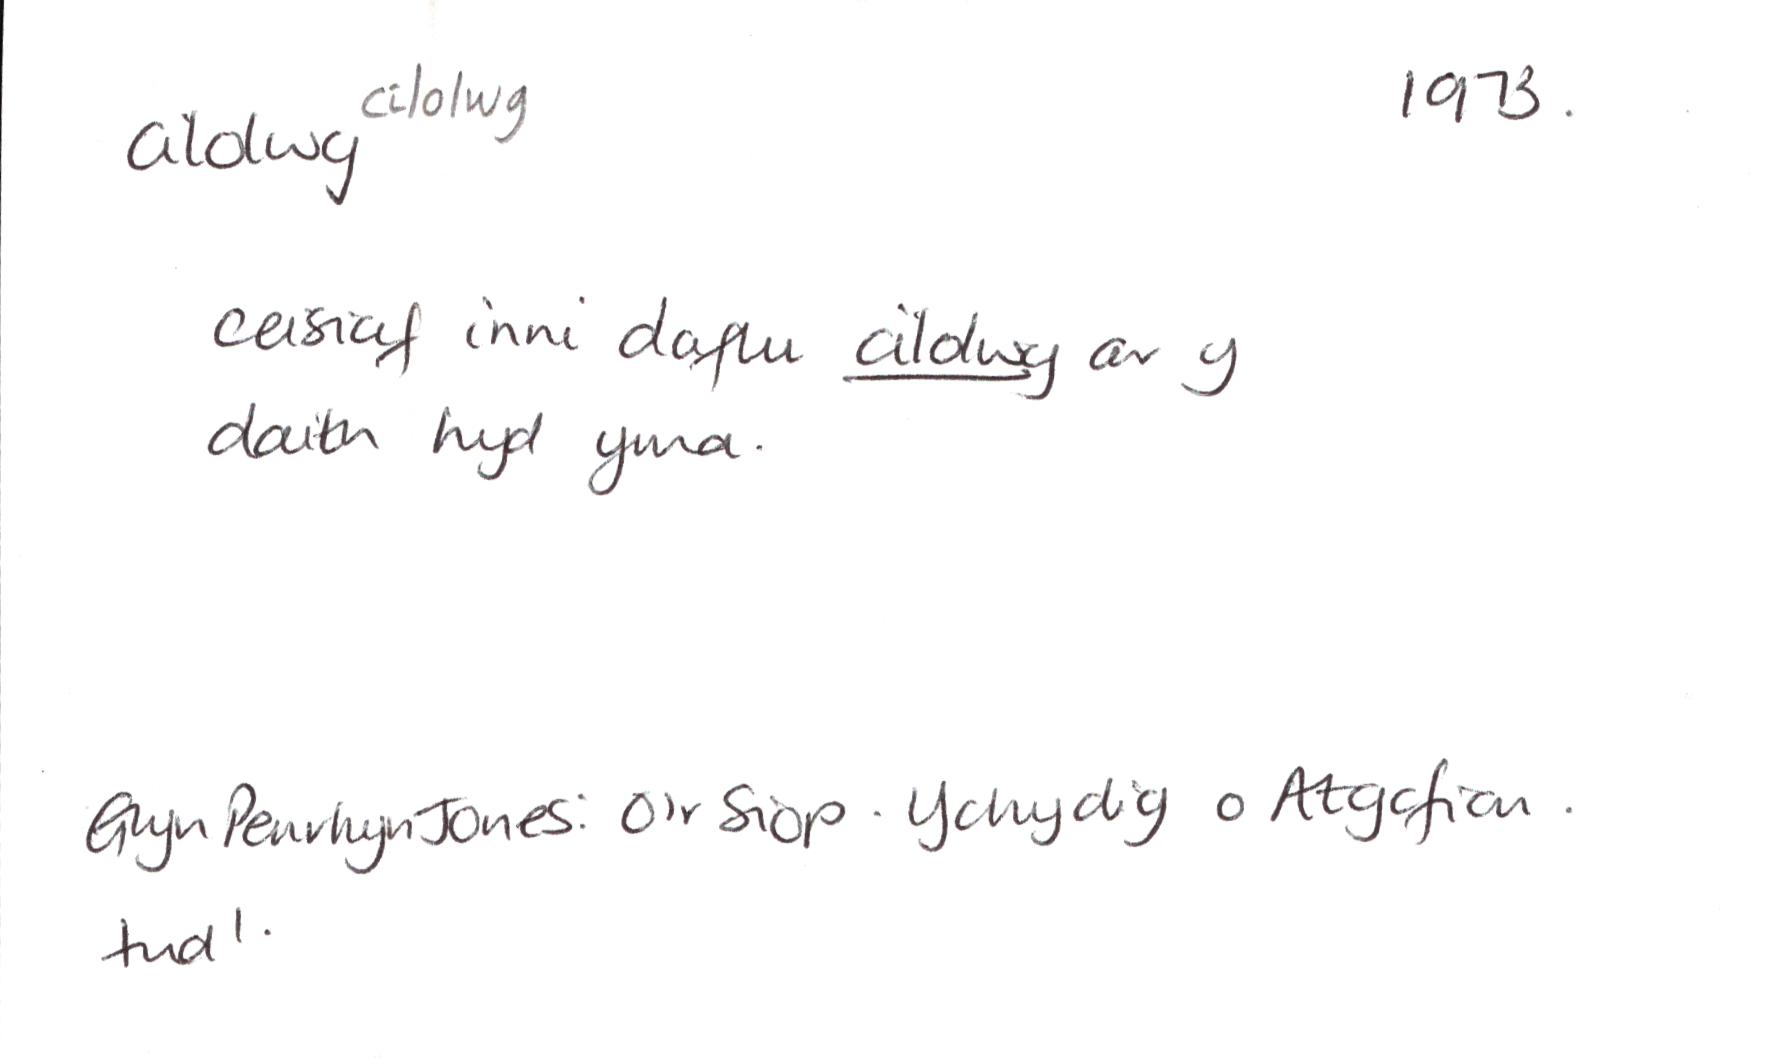 cilolwg cilolwg 1973.
ceisiaf inni daflu cilolwg ar y
daith hyd yma.
Glyn Penrhyn Jones: O'r Siop. Ychydig o Atgofion.
tud 1.